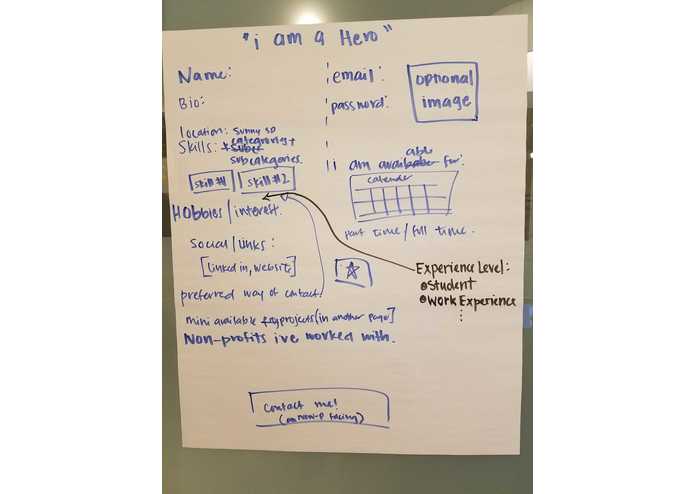 "i am a Hero"
Name:
email:
optional
image
Bio:
password:
location: sunny SD
Skills: categories +
subcategories.
i am available for:
calender
skill #1
skill #2
Hobbies/interest.
part time/full time.
Social/Links:
[Linkedin, website]
Experience Level:
student
work Experience
preferred way of contact:
mini available projects [in another page]
Non-profits ive worked with.
contact me!
(non-p facing)